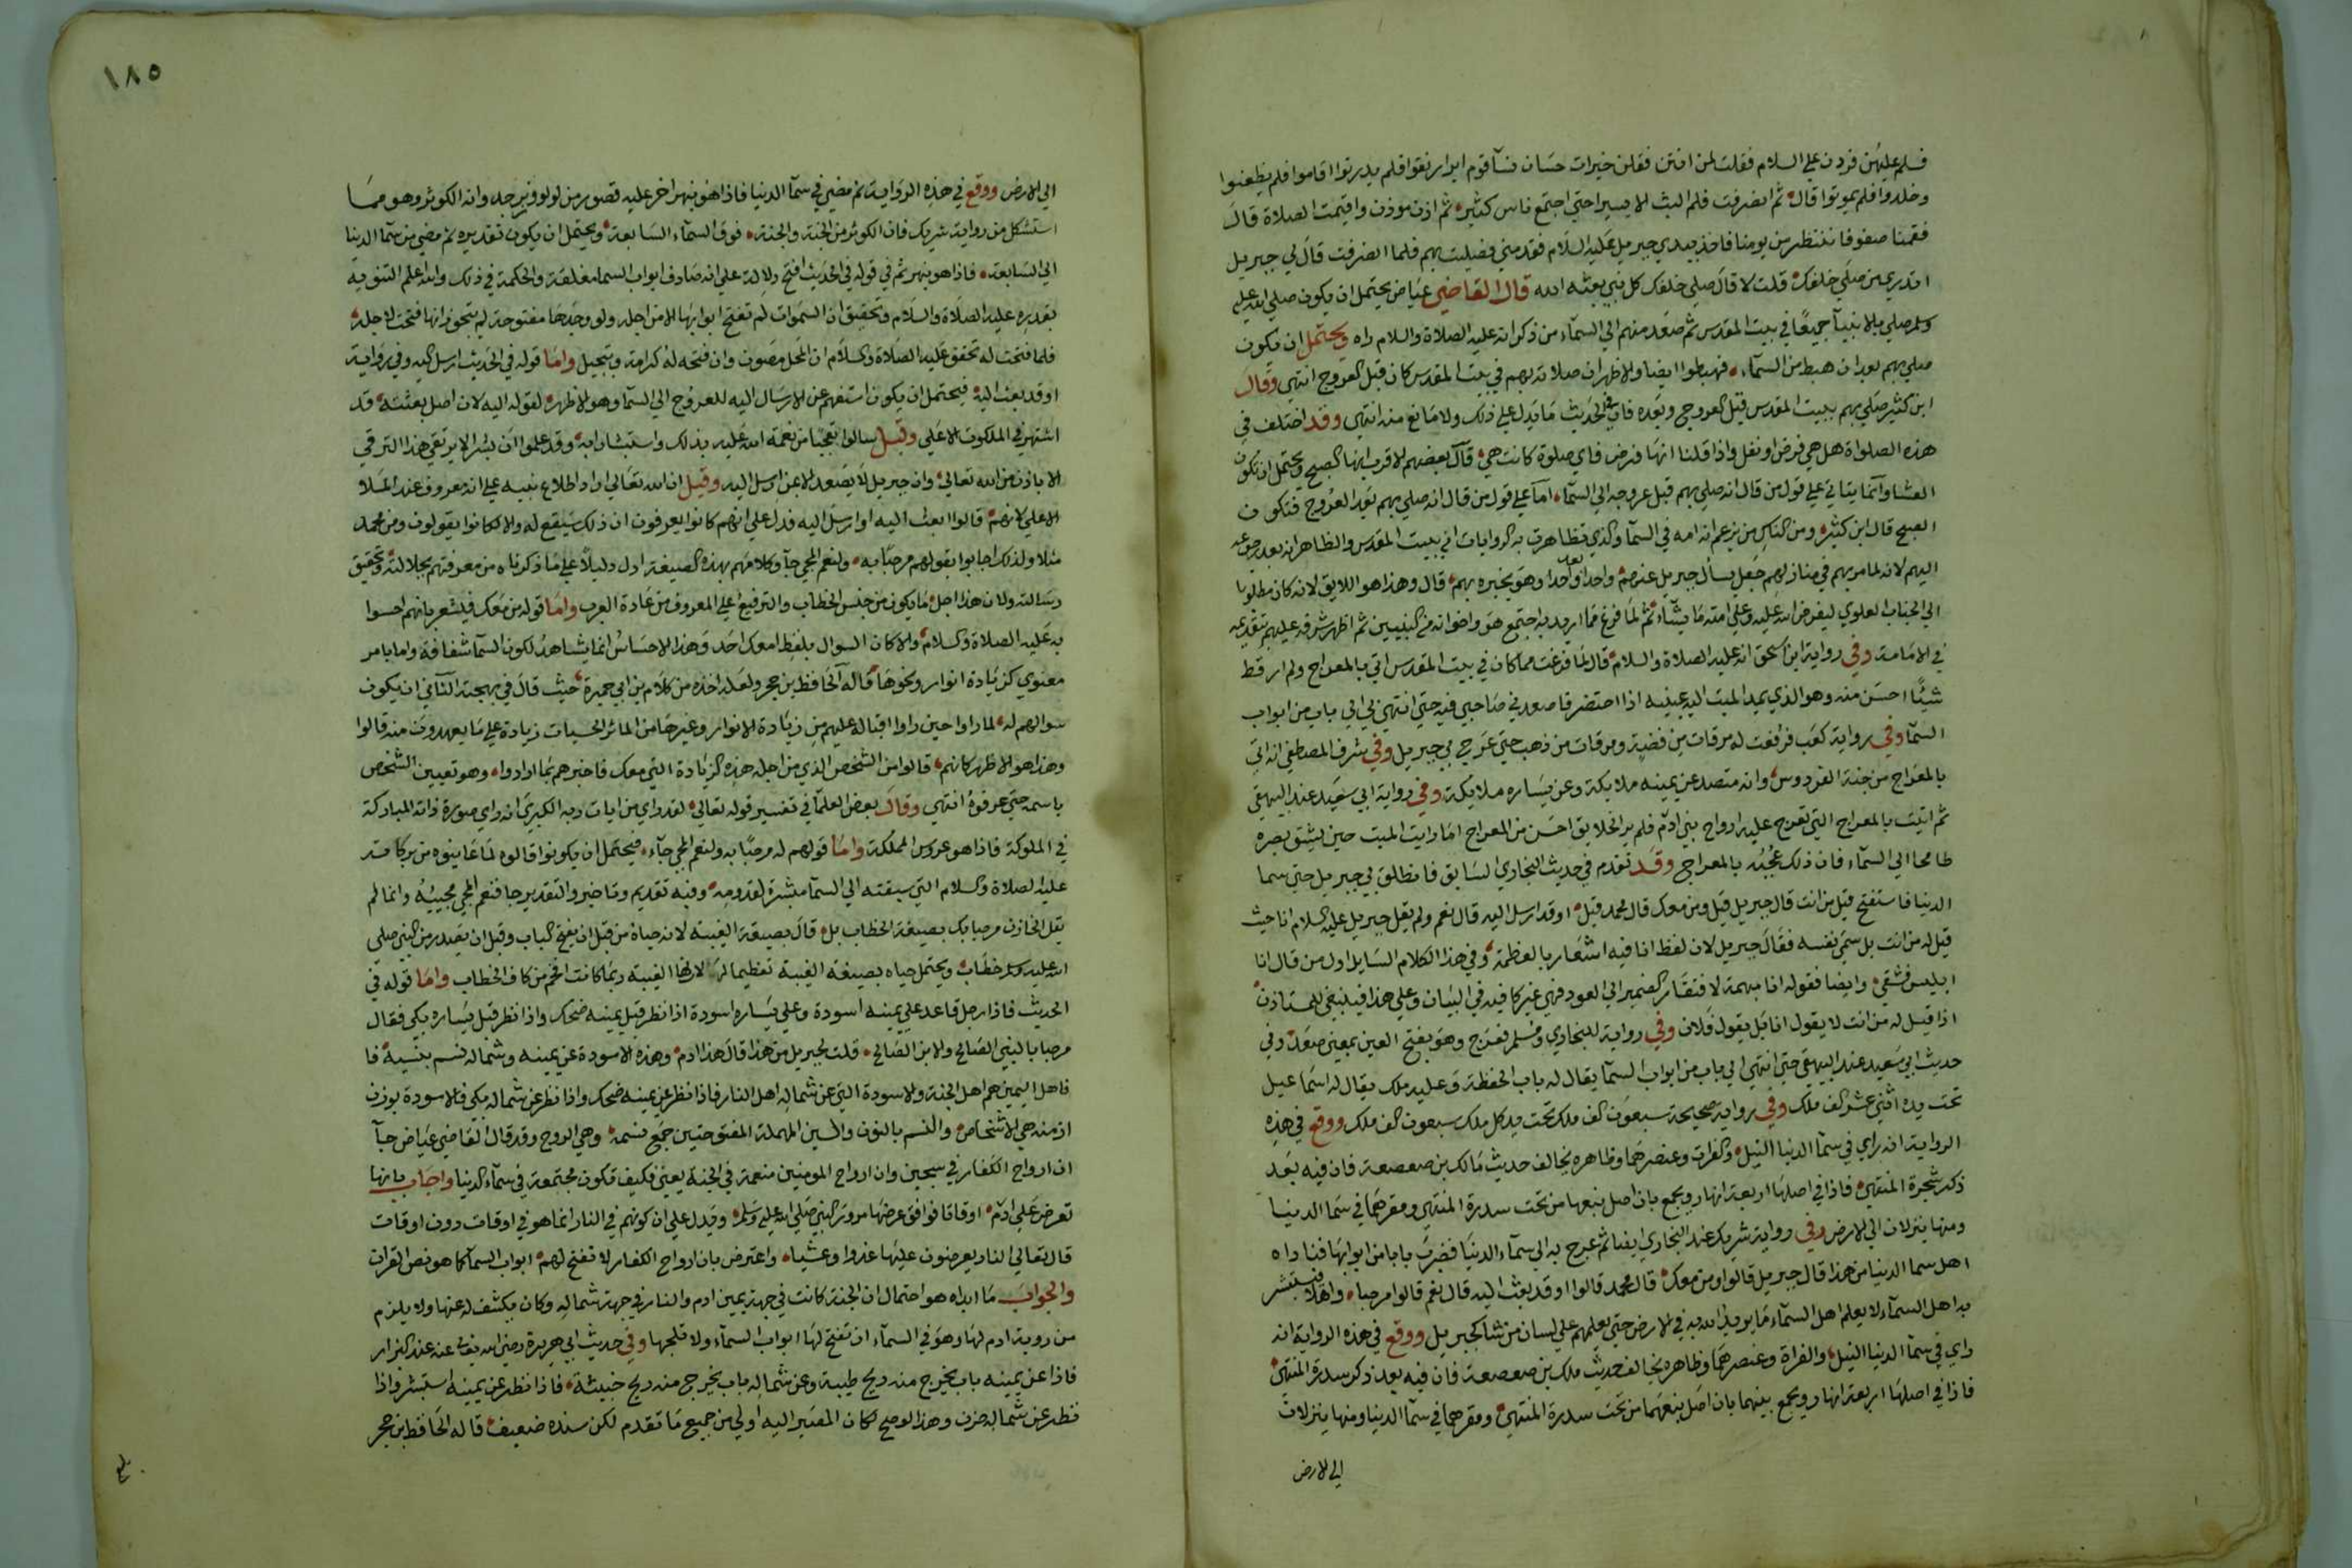 فسلم عليهن فرددن عليه السلام فقلت لمن انتن فقلن خيرات حسان نسآ قوم ابرار نقوا فلم يدرنوا اقاموا فلم يظعنوا
وخلدوا فلم يموتوا قال ثم انصرفت فلم البث الا يسيرا حتي اجتمع ناس كثير ثم اذن موذن واقيمت الصلاة قال
فقمنا صفوفا ننتظر من يومنا فاخذ بيدي جبريل عليه السلام فقدمني فصليت بهم فلما انصرفت قال لي جبريل
اتدري من صلي خلفك قلت لا قال صلي خلفك كل نبي بعثه الله قال القاضي عياض يحتمل ان يكون صلي الله عليه
وسلم صلي بالانبيآ جميعا في بيت المقدس ثم صعد منهم الي السمآء من ذكر انه عليه الصلاة والسلام راه ويحتمل ان يكون
صلي بهم بعد ان هبط من السمآء فهبطوا ايضا والاظهر ان صلاته بهم في بيت المقدس كان قبل العروج انتهي وقال
ابن كثير صلي بهم ببيت المقدس قبل العروج وبعده فان في الحديث ما يدل علي ذلك ولا مانع منه انتهي وقد اختلف في
هذه الصلواة هل هي فرض او نفل واذا قلنا انها فرض فاي صلوة كانت هي قال بعضهم الاقرب انها الصبح ويحتمل ان تكون
العشا وانما يتاتي علي قول من قال انه صلي بهم قبل عروجه الي السمآء اما علي قول من قال انه صلي بهم بعد العروج فتكون
الصبح قال ابن كثير ومن الناس من يزعم انه امه في السمآ والذي تظاهرت به الروايات انه ببيت المقدس والظاهر انه بعد رجوعه
اليهم لانه لما مر بهم في منازلهم جعل يسأل جبريل عنهم واحدا بعد واحدا وهو يخبره بهم قال وهذا هو اللايق لانه كان مطلوبا
الي الجناب العلوي ليفرض الله عليه وعلي امته ما يشاء ثم لما فرغ مما اريد به اجتمع هو واخوانه من النبيين ثم اظهر شرفه عليهم بتقديمه
في الامامة وفي رواية ابن اسحق انه عليه الصلاة والسلام قال لما فرغت مما كان في بيت المقدس اتي بالمعراج ولم ار قط
شيئا احسن منه وهو الذي يمد الميت اليه عينيه اذا احتضر فاصعدني صاحبي فيه حتي انتهي بي الي باب من ابواب
السمآ وفي رواية كعب فرفعت له مرقات من فضة ومرقات من ذهب حتي عرج بي جبريل وفي شرف المصطفي انه اتي
بالمعراج من جنة الفردوس وانه منضد عن يمينه ملايكة وعن يساره ملايكة وفي رواية ابي سعيد عند البيهقي
ثم اتيت بالمعراج التي تعرج عليه ارواح بني ادم فلم ير الخلايق احسن من المعراج اما رايت الميت حين يشق بصره
طامحا الي السمآء فان ذلك عجبه بالمعراج وقد تقدم في حديث البخاري السابق فانطلق بي جبريل حتي سما
الدنيا فاستفتح قيل من انت قال جبريل قيل ومن معك قال محمد قيل اوقد ارسل اليه قال نعم ولم يقل جبريل عليه السلام انا حيث
قيل له من انت بل سمي نفسه فقال جبريل لان لفظ انا فيه اشعار بالعظمة وفي هذا الكلام السايل اول من قال انا
ابليس فشقي وايضا فقوله انا مبهمة لافتقار الضمير الي العود فهي غير كافية في البيان وعلي هذا فينبغي للمستاذن
اذا قيل له من انت لا يقول انا بل يقول فلان وفي رواية للبخاري ومسلم فعرج وهو بفتح العين بمعني صعد وفي
حديث ابي سعيد عند البيهقي حتي انتهي الي باب من ابواب السمآ يقال له باب الحفظة وعليه ملك يقال له اسماعيل
تحت يده اثني عشر الف ملك وفي رواية صحيحة سبعون الف ملك تحت يد كل ملك سبعون الف ملك ووقع في هذه
الرواية انه راي في سمآ الدنيا النيل والفرات وعنصرهما وظاهره يخالف حديث مالك بن صعصعة فان فيه بعد
ذكر شجرة المنتهي فاذا في اصلها اربعة انهار ويجمع بان اصل نبعها من تحت سدرة المنتهي ومقرهما في سما الدنيا
ومنها ينزلان الي الارض وفي رواية شريك عند البخاري ايضا ثم عرج به الي سمآء الدنيا فضرب بابا من ابوابها فناداه
اهل سما الدنيا من هذا قال جبريل قالوا ومن معك قال محمد قالوا اوقد بعث اليه قال نعم قالوا مرحبا واهلا فيستبشر
به اهل السمآء لا يعلم اهل السمآء ما يريد الله به في الارض حتي يعلمهم علي لسان من شآ كجبريل ووقع في هذه الرواية انه
راي في سمآ الدنيا النيل والفراة وعنصرهما وظاهره يخالف حديث ملك بن صعصعة فان فيه بعد ذكر سدرة المنتهي
فاذا في اصلها اربعة انهار ويجمع بينهما بان اصل نبعهما من تحت سدرة المنتهي ومقرهما في سمآ الدنيا ومنها ينزلان
الي الارض
١٨٥
الي الارض ووقع في هذه الرواية ثم مضي في سمآ الدنيا فاذا هو بنهر اخر عليه قصور من لولو وزبرجد وانه الكوثر وهو مما
استشكل من رواية شريك فان الكوثر من الجنة والجنة فوق السمآء السابعة ويحتمل ان يكون تقديره ثم مضي من سمآ الدنيا
الي السابعة فاذا هو بنهر ثم في قوله في الحديث افتح دلالة علي انه صادف ابواب السما مغلقة والحكمة في ذلك والله اعلم التنويه
بقدره عليه الصلاة والسلام وتحقيق ان السموات لم تفتح ابوابها الا من اجله ولو وجدها مفتوحة لم يتحقق انها فتحت لاجله
فلما فتحت له تحقق عليه الصلاة والسلام ان المحل مصون وان فتحه له كرامة وتبجيل واما قوله في الحديث ارسل اليه وفي رواية
اوقد بعث اليه فيحتمل ان يكون استفهم عن الارسال اليه للعروج الي السمآ وهو الاظهر لقوله اليه لان اصل بعثته قد
اشتهر في الملكوت الاعلي وقيل سالوا تعجبا من نعمة الله عليه بذلك واستبشارا به وقد علموا ان بشرا لا يرتقي هذا الترقي
الا باذن من الله تعالي وان جبريل لا يصعد الا بمن ارسل اليه وقيل ان الله تعالي اراد اطلاع نبيه علي انه معروف عند الملا
الاعلي لانهم قالوا ابعث اليه او ارسل اليه فدل علي انهم كانوا يعرفون ان ذلك سيقع له والا لكانوا يقولون ومن محمد
مثلا ولذلك اجابوا بقولهم مرحبا به ولنعم المجي جآ وكلامهم بهذه الصيغة ادل دليلا علي ما ذكرناه من معرفتهم بجلالته وتحقيق
رسالته ولان هذا اجل ما يكون من جنس الخطاب والترفيع علي المعروف من عادة العرب واما قوله من معك فيشعر بانهم احسوا
به عليه الصلاة والسلام والا كان السوال بلفظ امعك احد وهذا الاحساس اما بمشاهدة لكون السمآ شفافة واما بامر
معنوي كزيادة انوار ونحوها قاله الحافظ بن حجر ولعله اخذه من كلام بن ابي جمرة حيث قال في بهجته الثاني ان يكون
سوالهم له لما راوا حين اقباله عليهم من زيادة الانوار وغيرها من المآثر الحسيات زيادة علي ما يعهدون منه قالوا
وهذا هو الاظهر كانهم قالوا من الشخص الذي من اجله هذه الزيادة التي معك فاخبرهم بما ارادوا وهو تعيين الشخص
باسمه حتي عرفوه انتهي وقال بعض العلمآ في تفسير قوله تعالي لقد راي من ايات ربه الكبري انه راي صورة ذاته المباركة
في الملوكة فاذا هو عروس المملكة واما قولهم له مرحبا به ولنعم المجي جآء فيحتمل ان يكونوا قالوه لما عاينوه من بركاته
عليه الصلاة والسلام التي سبقته الي السمآ مبشرة لقدومه وفيه تقديم وتاخير والتقدير جا فنعم المجي مجيئه وانما لم
يقل الخازن مرحبا بك بصيغة الخطاب بل قال بصيغة الغيبة لانه حياه من قبل ان يفتح الباب وقبل ان يصدر من النبي صلي
الله عليه وسلم خطاب ويحتمل حياه بصيغة الغيبة تعظيما له لان ها الغيبة ربما كانت افخم من كاف الخطاب واما قوله في
الحديث فاذا رجل قاعد علي يمينه اسودة وعلي يساره اسودة اذا نظر قبل يمينه ضحك واذا نظر قبل يساره بكي فقال
مرحبا بالنبي الصالح والابن الصالح قلت لجبريل من هذا قال هذا ادم وهذه الاسودة عن يمينه وشماله نسم بنيه فا
فاهل اليمين هم اهل الجنة والاسودة التي عن شماله اهل النار فاذا نظر عن يمينه ضحك واذا نظر عن شماله بكي فالاسودة بوزن
ازمنة هي الاشخاص والنسم بالنون والسين المهملة المفتوحتين جمع نسمة وهي الروح وقد قال القاضي عياض جآ
ان ارواح الكفار في سجين وان ارواح المومنين منعمة في الجنة يعني فكيف تكون مجتمعة في سمآء الدنيا واجاب بانها
تعرض علي ادم اوقاتا فوافق عرضها مرور النبي صلي الله عليه وسلم ويدل علي ان كونهم في النار انما هو في اوقات دون اوقات
قال تعالي النار يعرضون عليها غدوا وعشيا واعترض بان ارواح الكفار لا تفتح لهم ابواب السما كما هو نص القران
والجواب ما ابداه هو احتمال ان الجنة كانت في جهة يمين ادم والنار في جهة شماله وكان يكشف له عنها ولا يلزم
من روية ادم لها وهو في السمآء ان تفتح لها ابواب السمآء ولا تلجها وفي حديث ابي هريرة رضي الله تعالي عنه عند البزار
فاذا عن يمينه باب يخرج منه ريح طيبة وعن شماله باب يخرج منه ريح خبيثة فاذا نظر عن يمينه استبشر واذا
نظر عن شماله حزن وهذا لو صح لكان المصير اليه اولي من جميع ما تقدم لكن سنده ضعيف قاله الحافظ بن حجر